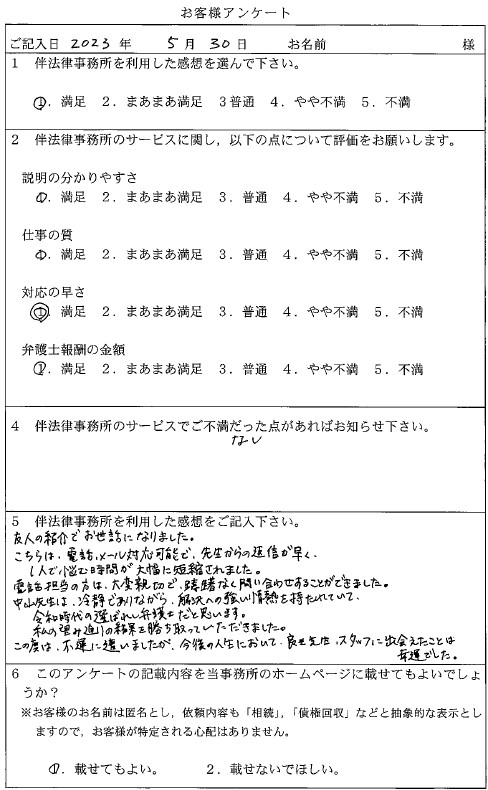 お客様アンケート
ご記入日 2023 年 5 月 30 日 お名前 様
1 伴法律事務所を利用した感想を選んで下さい。
①. 満足 2. まあまあ満足 3普通 4. やや不満 5. 不満
2 伴法律事務所のサービスに関し，以下の点について評価をお願いします。
説明の分かりやすさ
①. 満足 2. まあまあ満足 3. 普通 4. やや不満 5. 不満
仕事の質
①. 満足 2. まあまあ満足 3. 普通 4. やや不満 5. 不満
対応の早さ
①. 満足 2. まあまあ満足 3. 普通 4. やや不満 5. 不満
弁護士報酬の金額
①. 満足 2. まあまあ満足 3. 普通 4. やや不満 5. 不満
4 伴法律事務所のサービスでご不満だった点があればお知らせ下さい。
なし
5 伴法律事務所を利用した感想をご記入下さい。
友人の紹介でお世話になりました。
こちらは、電話、メール対応可能で、先生からの返信が早く、
1人で悩む時間が大幅に短縮されました。
電話担当の方は、大変親切で、躊躇なく問い合わせすることができました。
中山先生は、冷静でありながら、解決への強い情熱を持たれていて、
令和時代の選ばれし弁護士だと思います。
私の望み通りの結果を勝ち取っていただきました。
この度は、不運に遭いましたが、今後の人生において、良き先生、スタッフに出会えたことは
幸運でした。
6 このアンケートの記載内容を当事務所のホームページに載せてもよいでしょ
うか？
※お客様のお名前は匿名とし，依頼内容も「相続」，「債権回収」などと抽象的な表示とし
ますので，お客様が特定される心配はありません。
①. 載せてもよい。 2. 載せないでほしい。